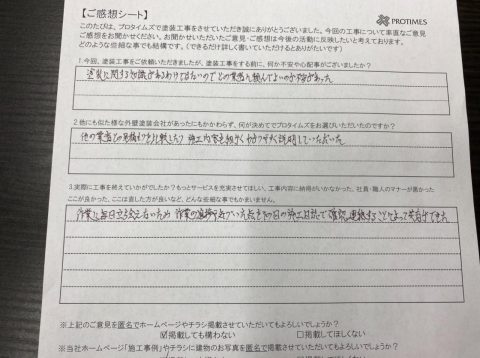 【ご感想シート】
PROTIMES
このたびは、プロタイムズで塗装工事をさせていただき誠にありがとうございました。今回の工事について率直なご意見
ご感想をお聞かせください。お聞かせいただいたご意見・ご感想は今後の活動に反映したいと考えております。
どのような些細な事でも結構です。(できるだけ詳しく書いていただけるとありがたいです)
1.今回、塗装工事をご依頼いただきましたが、塗装工事をする前に、何か不安や心配事がございましたか?
塗装に関する知識があるわけではないのでどの業者に頼んでよいのか不安があった
2.他にも似た様な外壁塗装会社があったにもかかわらず、何が決めてでプロタイムズをお選びいただいたのですか?
他の業者との見積もりを比較したり 施工内容を細かくわかりやすく説明していただいた
3.実際に工事を終えていかがでしたか?もっとサービスを充実させてほしい、工事内容に納得がいかなかった、社員・職人のマナーが悪かった
ここが良かった、ここは直した方が良いなど、どんな些細な事でもかまいません。
作業に毎日立ち会えないため 作業の進捗や
※上記のご意見を匿名でホームページやチラシ掲載させていただいてもよろしいでしょうか?
☑掲載しても構わない □掲載してほしくない
※当社ホームページ「施工事例」やチラシに建物のお写真を匿名で掲載させていただいてもよろしいでしょうか?